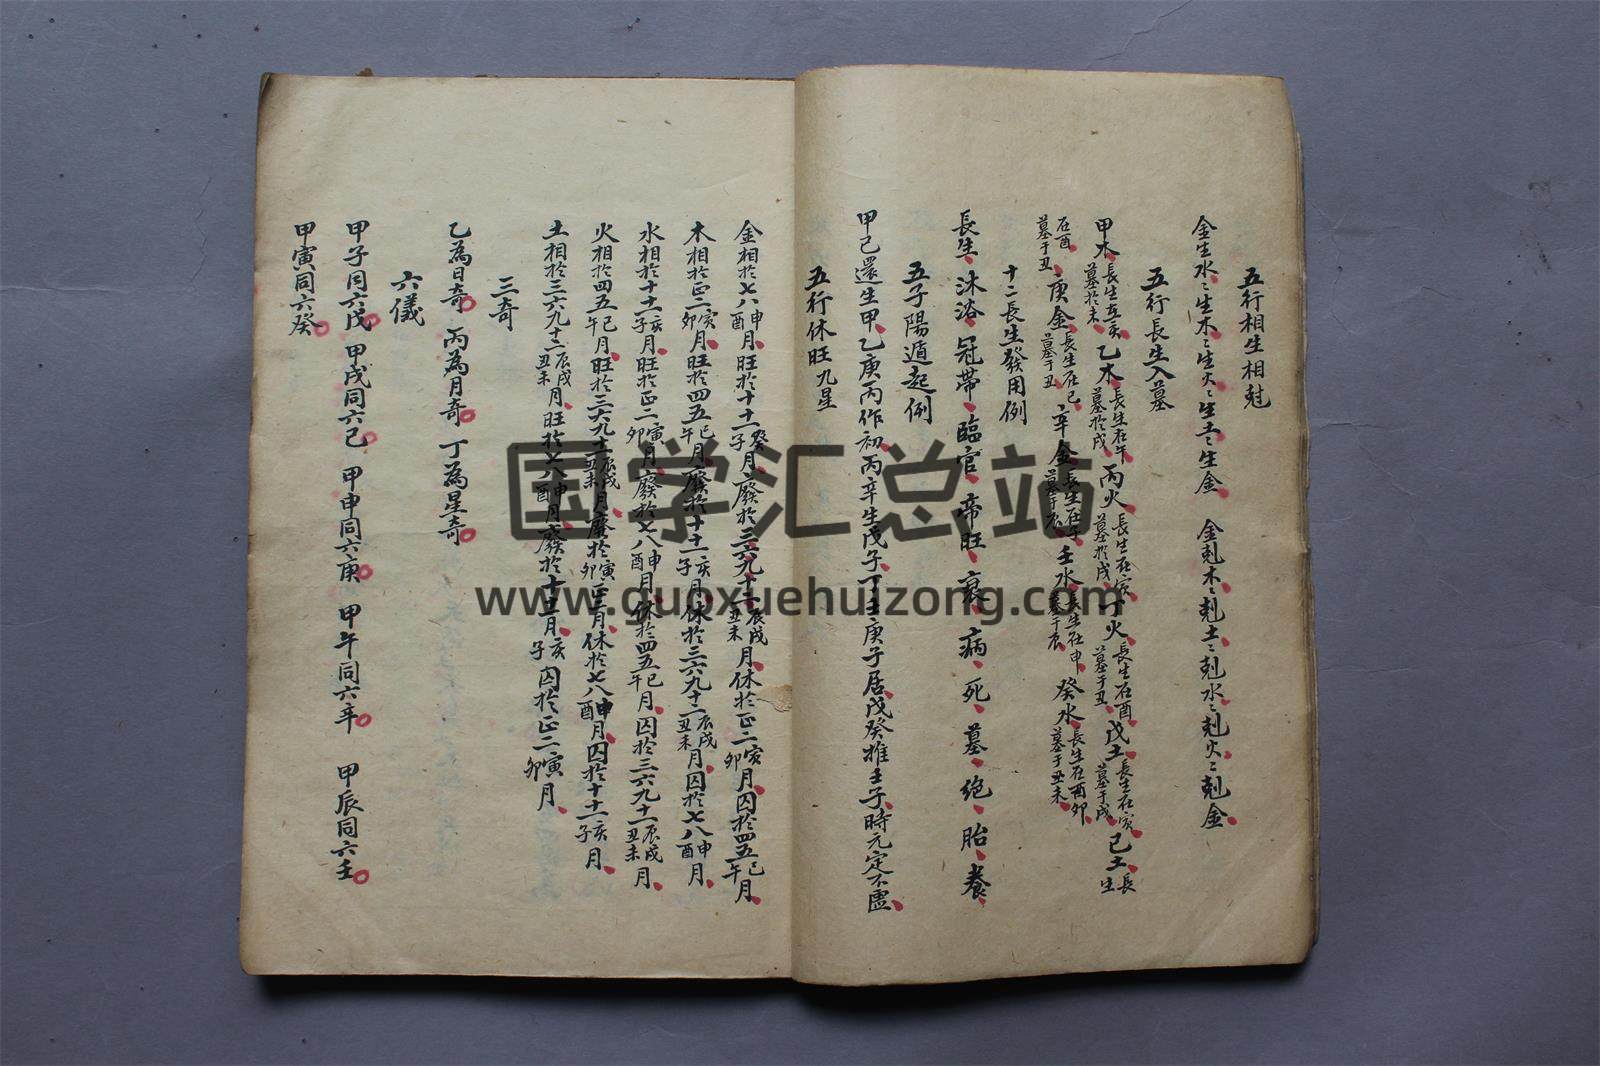 五行相生相尅
金生水〻生木〻生火〻生土〻生金 金尅木〻尅土〻尅水〻尅火〻尅金
五行長生入墓
甲木長生在亥墓於未 乙木長生在午墓於戌 丙火長生在寅墓於戌 丁火長生在酉墓于丑 戊土長生在寅墓于戌 己土長生
在酉墓于丑 庚金長生在巳墓于丑 辛金長生在子墓于辰 壬水長生在申墓于辰 癸水長生在酉卯墓于丑未
十二長生發用例
長生 沐浴 冠帶 臨官 帝旺 衰 病 死 墓 绝 胎 養
五子陽遁起例
甲己還生甲 乙庚丙作初 丙辛生戊子 丁壬庚子居 戊癸推壬子 時元定不虛
五行休旺九星
金相於七八申酉月 旺於十十一癸子月 廢於三六九十二辰戌丑未月 休於正二寅卯月 囚於四五巳午月
木相於正二寅卯月 旺於四五巳午月 廢於十十一亥子月 休於三六九十二辰戌丑未月 囚於七八申酉月
水相於十十一亥子月 旺於正二寅卯月 廢於七八申酉月 休於四五巳午月 囚於三六九十二辰戌丑未月
火相於四五巳午月 旺於三六九十二辰戌丑未月 廢於正二寅卯月 休於七八申酉月 囚於十十一亥子月
土相於三六九十二辰戌丑未月 旺於七八申酉月 廢於十十一月亥子 囚於正二寅卯月
三奇
乙為日奇 丙為月奇 丁為星奇
六儀
甲子同六戊 甲戌同六己 甲申同六庚 甲午同六辛 甲辰同六壬
甲寅同六癸
国学汇总站
www.guoxuehuizong.com